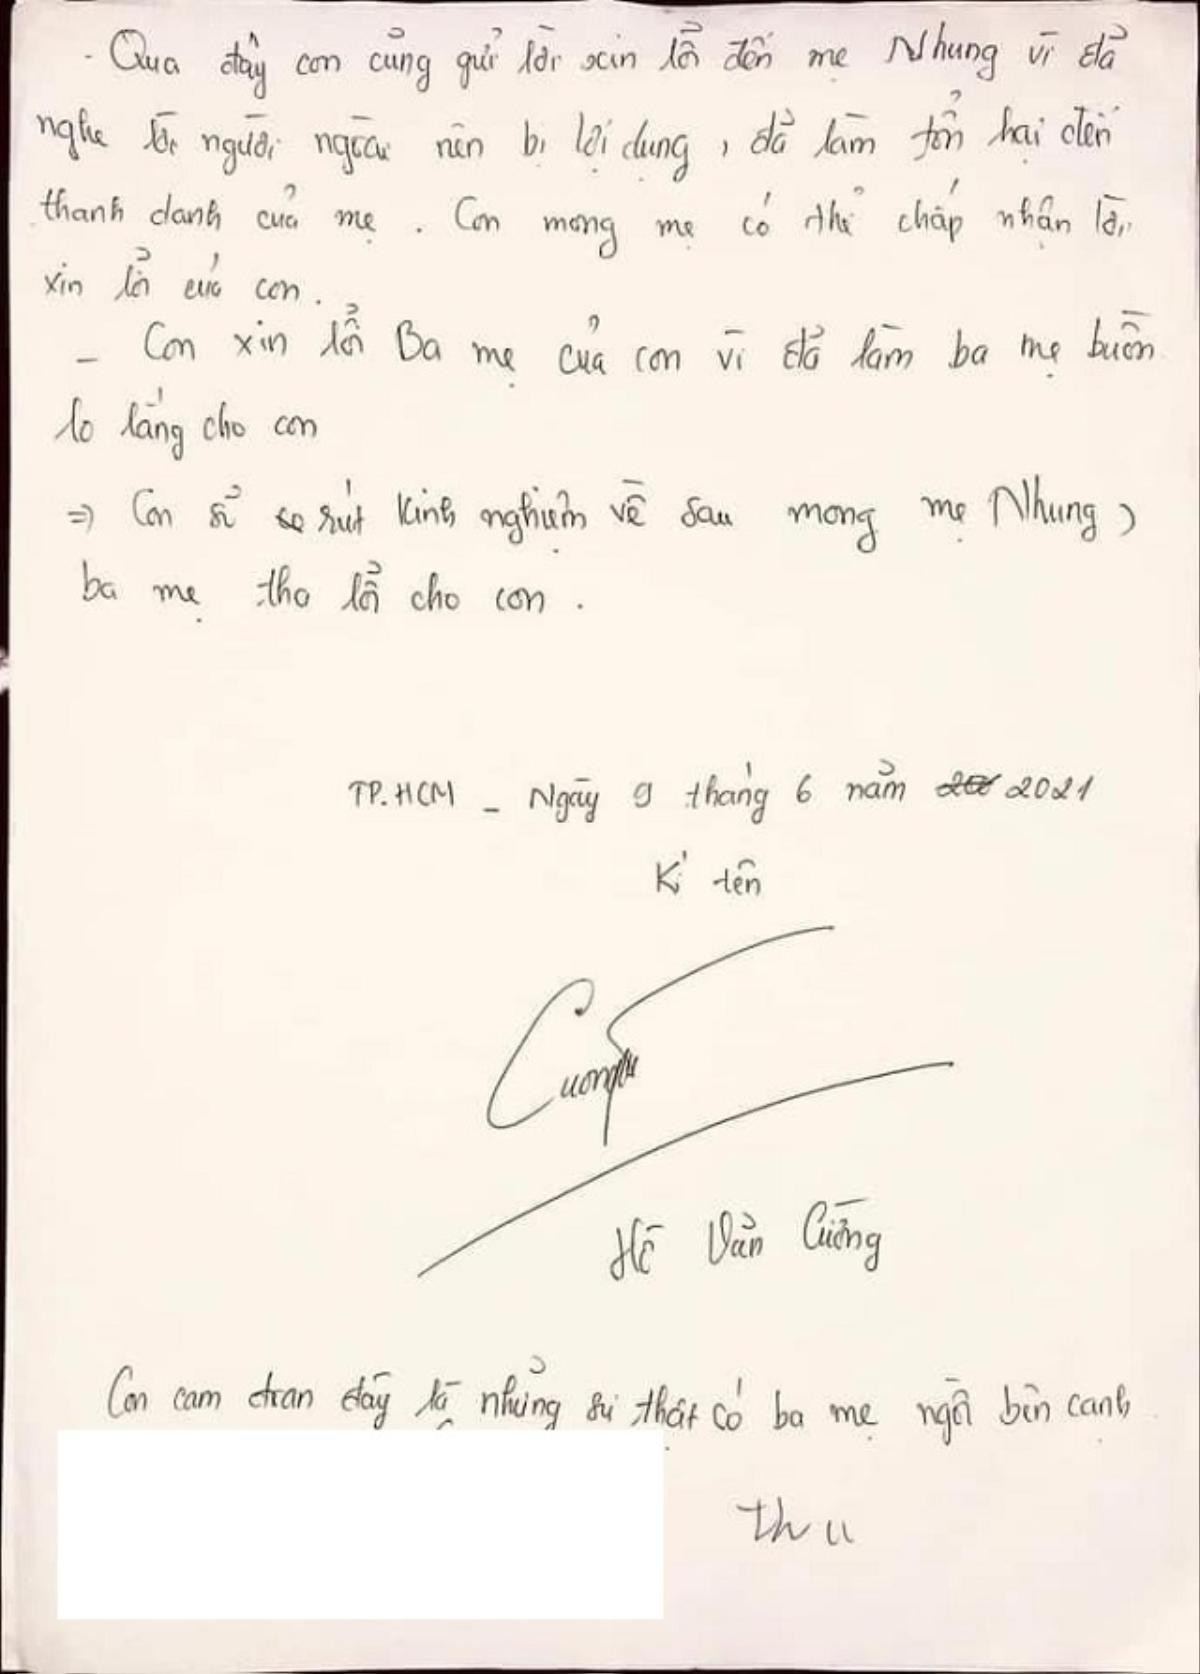 - Qua đây con củng gửi lời xin lổi đến mẹ Nhung vì đả
nghe lời người ngoài nên bị lợi dụng, đả làm tổn hại đến
thanh danh của mẹ. Con mong mẹ có thể chấp nhận lời
xin lổi của con.
- Con xin lổi Ba mẹ của con vì đả làm ba mẹ buồn
lo lắng cho con
⇒ Con sẻ rút kinh nghiệm về sau mong mẹ Nhung,
ba mẹ tha lổi cho con.
TP.HCM - Ngày 9 tháng 6 năm 2021
Kí tên
Cuong
Hồ Văn Cường
Con cam đoan đây là nhửng sự thật có ba mẹ ngồi bên cạnh
thu